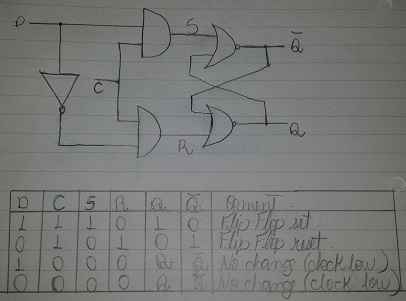 D
S
Q̄
C
R
Q
D C S R Q Q̄ Comment
1 1 1 0 1 0 Flip Flop set
0 1 0 1 0 1 Flip Flop reset.
1 0 0 0 Q Q̄ No change (clock low)
0 0 0 0 Q Q̄ No change (clock low)